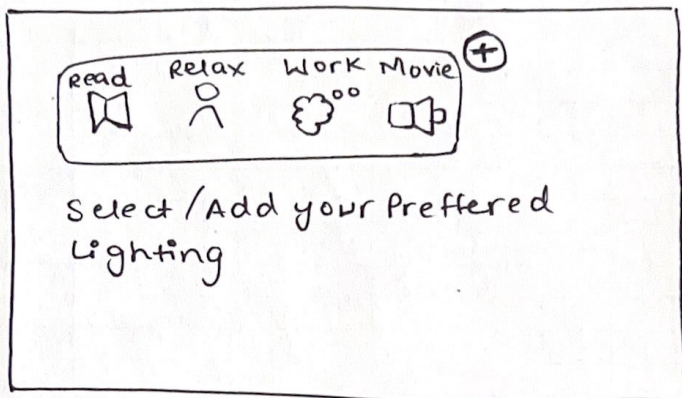 Read Relax Work Movie
Select/Add your Preffered
Lighting